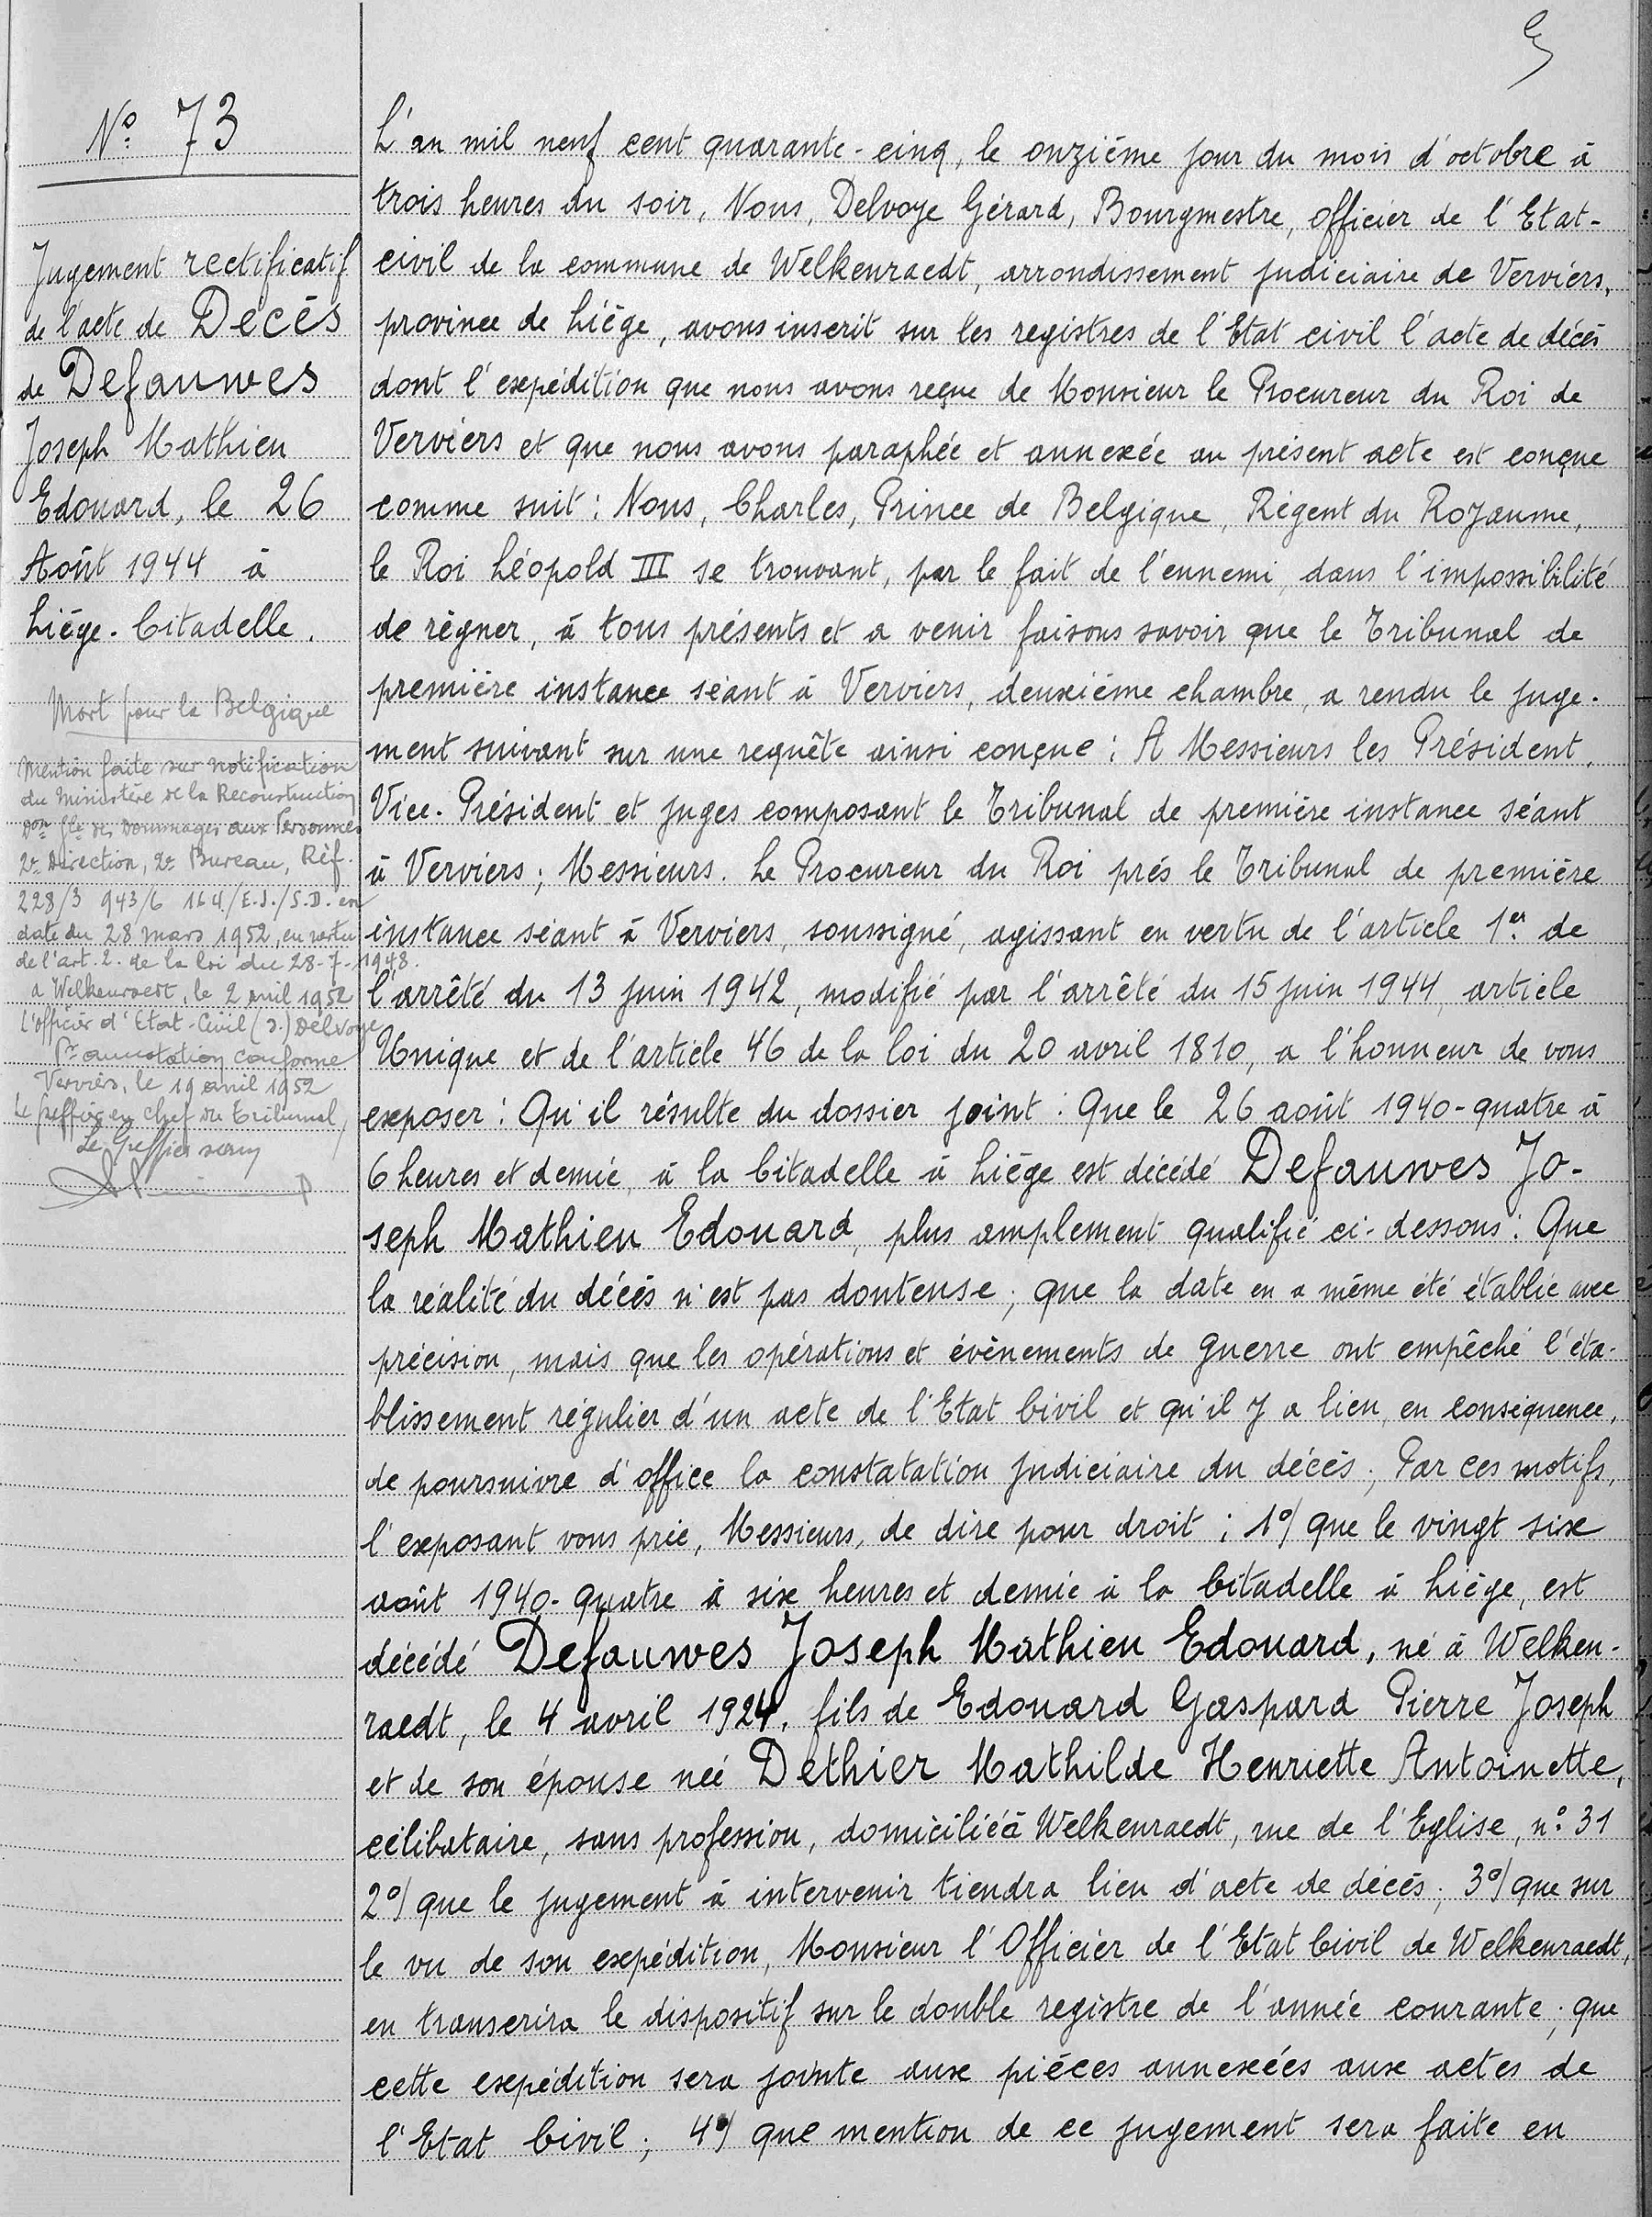 N° 73
Jugement rectificatif
de l'acte de Décès
de Defauwes
Joseph Mathieu
Edouard, le 26
Août 1944 à
Liége. Citadelle.
Mort pour la Belgique
Mention faite sur notification
du Ministère de la Reconstruction
Don Gle des Dommages aux Personnes
2e Direction, 2e Bureau, Réf.
228/3 943/6 164/E.J./S.D. en
date du 28 mars 1952, en vertu
de l'art. 2. de la loi du 28-7-1948.
a Welkenraedt, le 2 avril 1952
L'officier d'Etat-Civil (s.) Delvoye
Pr annotation conforme
Verviers, le 19 avril 1952
Le Greffier en chef du Tribunal,
Le Greffier
L'an mil neuf cent quarante-cinq, le onzième jour du mois d'octobre à
trois heures du soir, Nous, Delvoye Gérard, Bourgmestre, officier de l'Etat-
civil de la commune de Welkenraedt, arrondissement judiciaire de Verviers,
province de Liége, avons inscrit sur les registres de l'Etat civil l'acte de décès
dont l'expédition que nous avons reçue de Monsieur le Procureur du Roi de
Verviers et que nous avons paraphée et annexée au présent acte est conçue
comme suit : Nous, Charles, Prince de Belgique, Régent du Royaume,
le Roi Léopold III se trouvant, par le fait de l'ennemi, dans l'impossibilité
de régner, à tous présents et a venir faisons savoir que le Tribunal de
première instance séant à Verviers, deuxième chambre, a rendu le juge-
ment suivant sur une requête ainsi conçue : A Messieurs les Président,
Vice-Président et juges composant le Tribunal de première instance séant
à Verviers ; Messieurs. Le Procureur du Roi près le Tribunal de première
instance séant à Verviers, soussigné, agissant en vertu de l'article 1er de
l'arrêté du 13 juin 1942, modifié par l'arrêté du 15 juin 1944, article
Unique et de l'article 46 de la loi du 20 avril 1810, a l'honneur de vous
exposer : Qu'il résulte du dossier joint : Que le 26 août 1940-quatre à
6 heures et demie, à la Citadelle à Liége est décédé Defauwes Jo-
seph Mathieu Edouard, plus amplement qualifié ci-dessous : Que
la réalité du décès n'est pas douteuse ; que la date en a même été établie avec
précision, mais que les opérations et évènements de guerre ont empêché l'éta-
blissement régulier d'un acte de l'Etat Civil et qu'il y a lieu, en conséquence,
de poursuivre d'office la constatation judiciaire du décès ; Par ces motifs,
l'exposant vous prie, Messieurs, de dire pour droit : 1°/ que le vingt six
août 1940-quatre à six heures et demie à la Citadelle à Liége, est
décédé Defauwes Joseph Mathieu Edouard, né à Welken-
raedt, le 4 avril 1924, fils de Edouard Gaspard Pierre Joseph
et de son épouse née Dethier Mathilde Henriette Antoinette,
célibataire, sans profession, domicilié à Welkenraedt, rue de l'Eglise, n° 31
2°/ que le jugement à intervenir tiendra lieu d'acte de décès ; 3°/ que sur
le vu de son expédition, Monsieur l'Officier de l'Etat Civil de Welkenraedt,
en transcrira le dispositif sur le double registre de l'année courante ; que
cette expédition sera jointe aux pièces annexées aux actes de
l'Etat Civil ; 4°/ que mention de ce jugement sera faite en